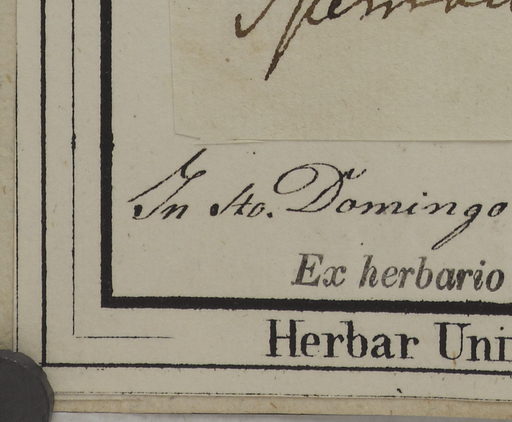 In Sto. Domingo
Ex herbario
Herbar Uni